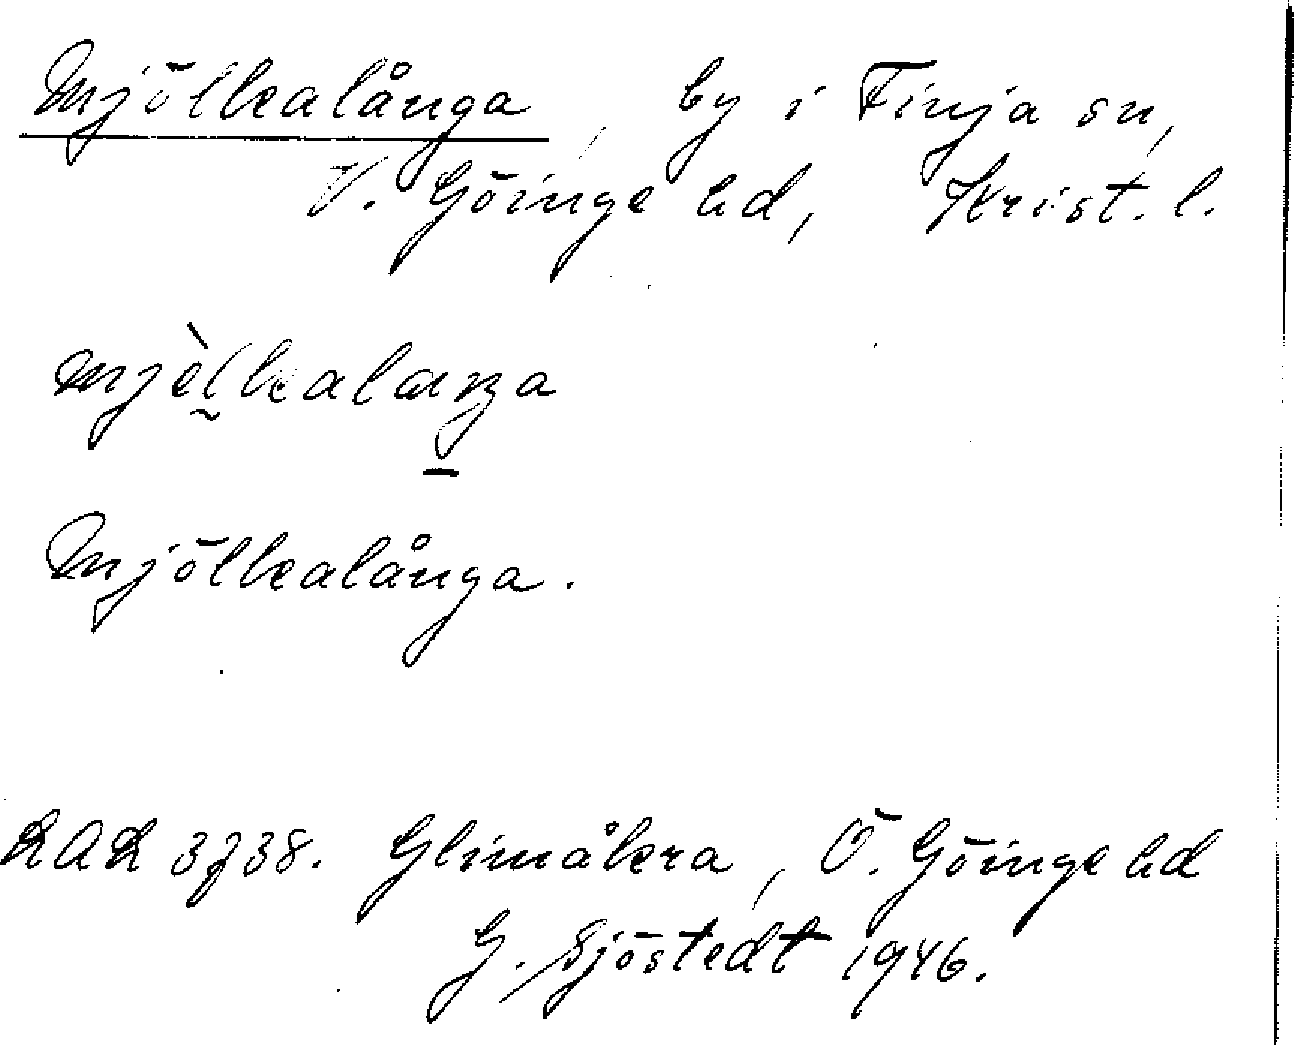 Mjölkalånga, by i Finja sn,
V. Göinge hd, Krist. l.
mjèlkalaŋa
Mjölkalånga.
RAÄ 3738. Glimåkra, Ö. Göinge hd
G. Sjöstedt 1946.